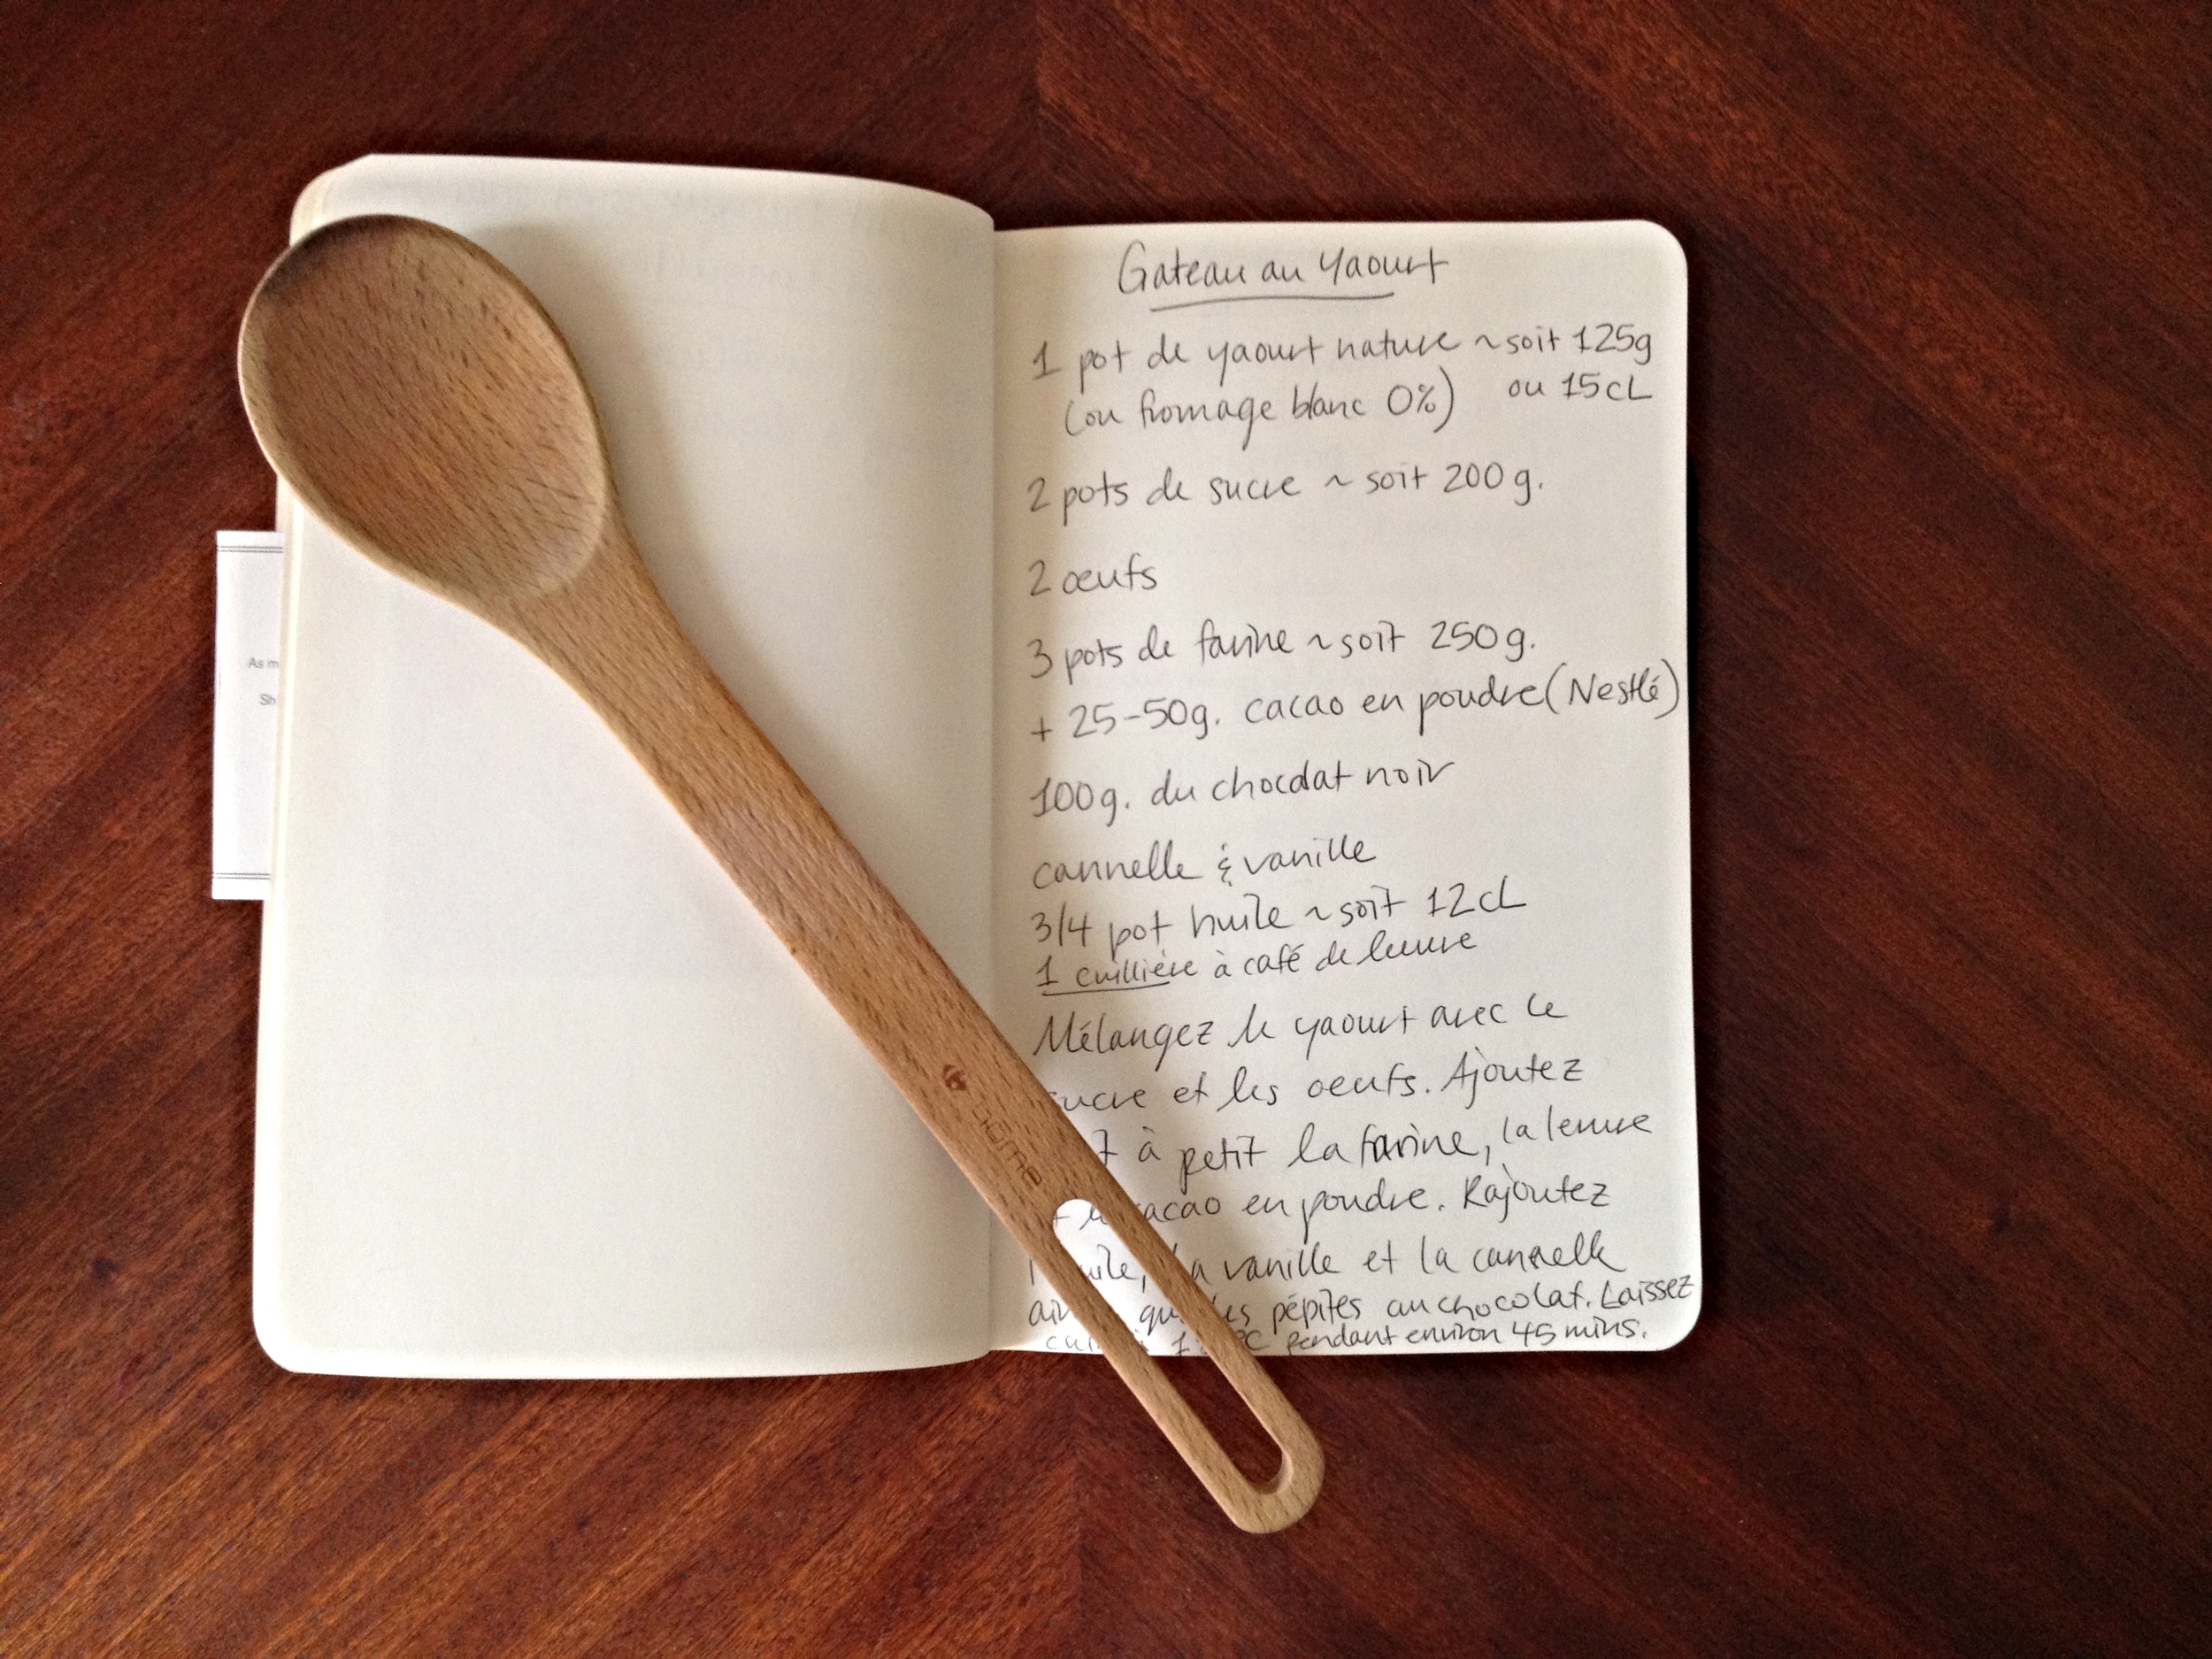 As m
Sh
Gateau au yaourt
1 pot de yaourt nature ~ soit 125g
(ou fromage blanc 0%) ou 15cL
2 pots de sucre ~ soit 200g.
2 œufs
3 pots de farine ~ soit 250g.
+ 25-50g. cacao en poudre (Nestlé)
100g. du chocolat noir
cannelle & vanille
3/4 pot huile ~ soit 12cL
1 cuillière à café de levure
Mélangez le yaourt avec le
ucre et les oeufs. Ajoutez
t à petit la farine, la levure
acao en poudre. Rajoutez
uile, la vanille et la cannelle
que les pépites au chocolat. Laissez
pendant environ 45 mins.
home